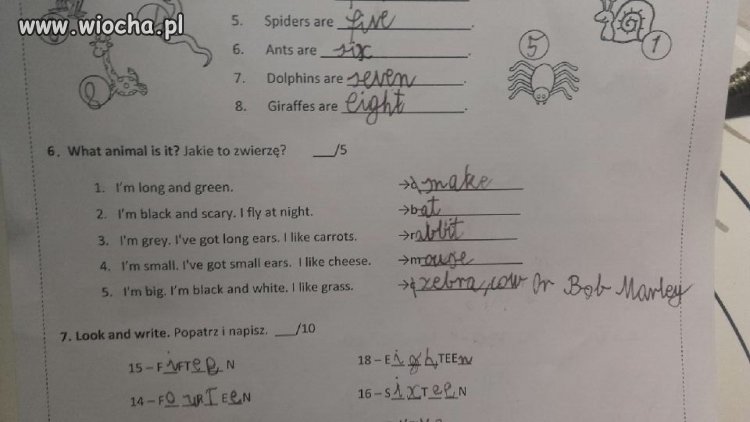 www.wiocha.pl
5. Spiders are five.
6. Ants are six.
7. Dolphins are seven.
8. Giraffes are eight.
5
1
2
6. What animal is it? Jakie to zwierzę? ___/5
1. I'm long and green. →snake
2. I'm black and scary. I fly at night. →bat
3. I'm grey. I've got long ears. I like carrots. →rabbit
4. I'm small. I've got small ears. I like cheese. →mouse
5. I'm big. I'm black and white. I like grass. →zebra, cow Or Bob Marley
7. Look and write. Popatrz i napisz. ___/10
15 – FiFTeeN 18 – EighTEEn
14 – FOuRTEeN 16 – SixTeeN